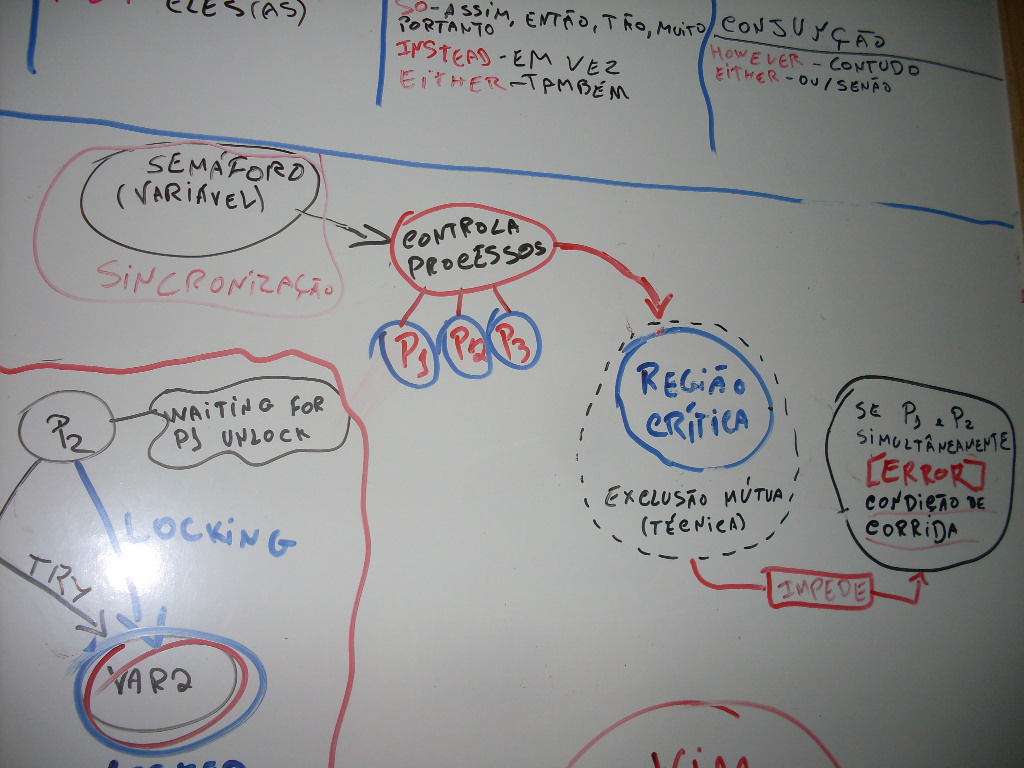 ELES(AS)
SO-ASSIM, ENTÃO, TÃO, MUITO
PORTANTO
INSTEAD - EM VEZ
EITHER - TAMBÉM
CONJUNÇÃO
HOWEVER - CONTUDO
EITHER - OU/SENÃO
SEMÁFORO
(VARIÁVEL)
SINCRONIZAÇÃO
CONTROLA
PROCESSOS
P1 P2 P3
REGIÃO
CRÍTICA
EXCLUSÃO MÚTUA
(TÉCNICA)
IMPEDE
SE P1 e P2
SIMULTÂNEAMENTE
[ERROR]
CONDIÇÃO DE
CORRIDA
P2
WAITING FOR
P1 UNLOCK
LOCKING
TRY
VAR2